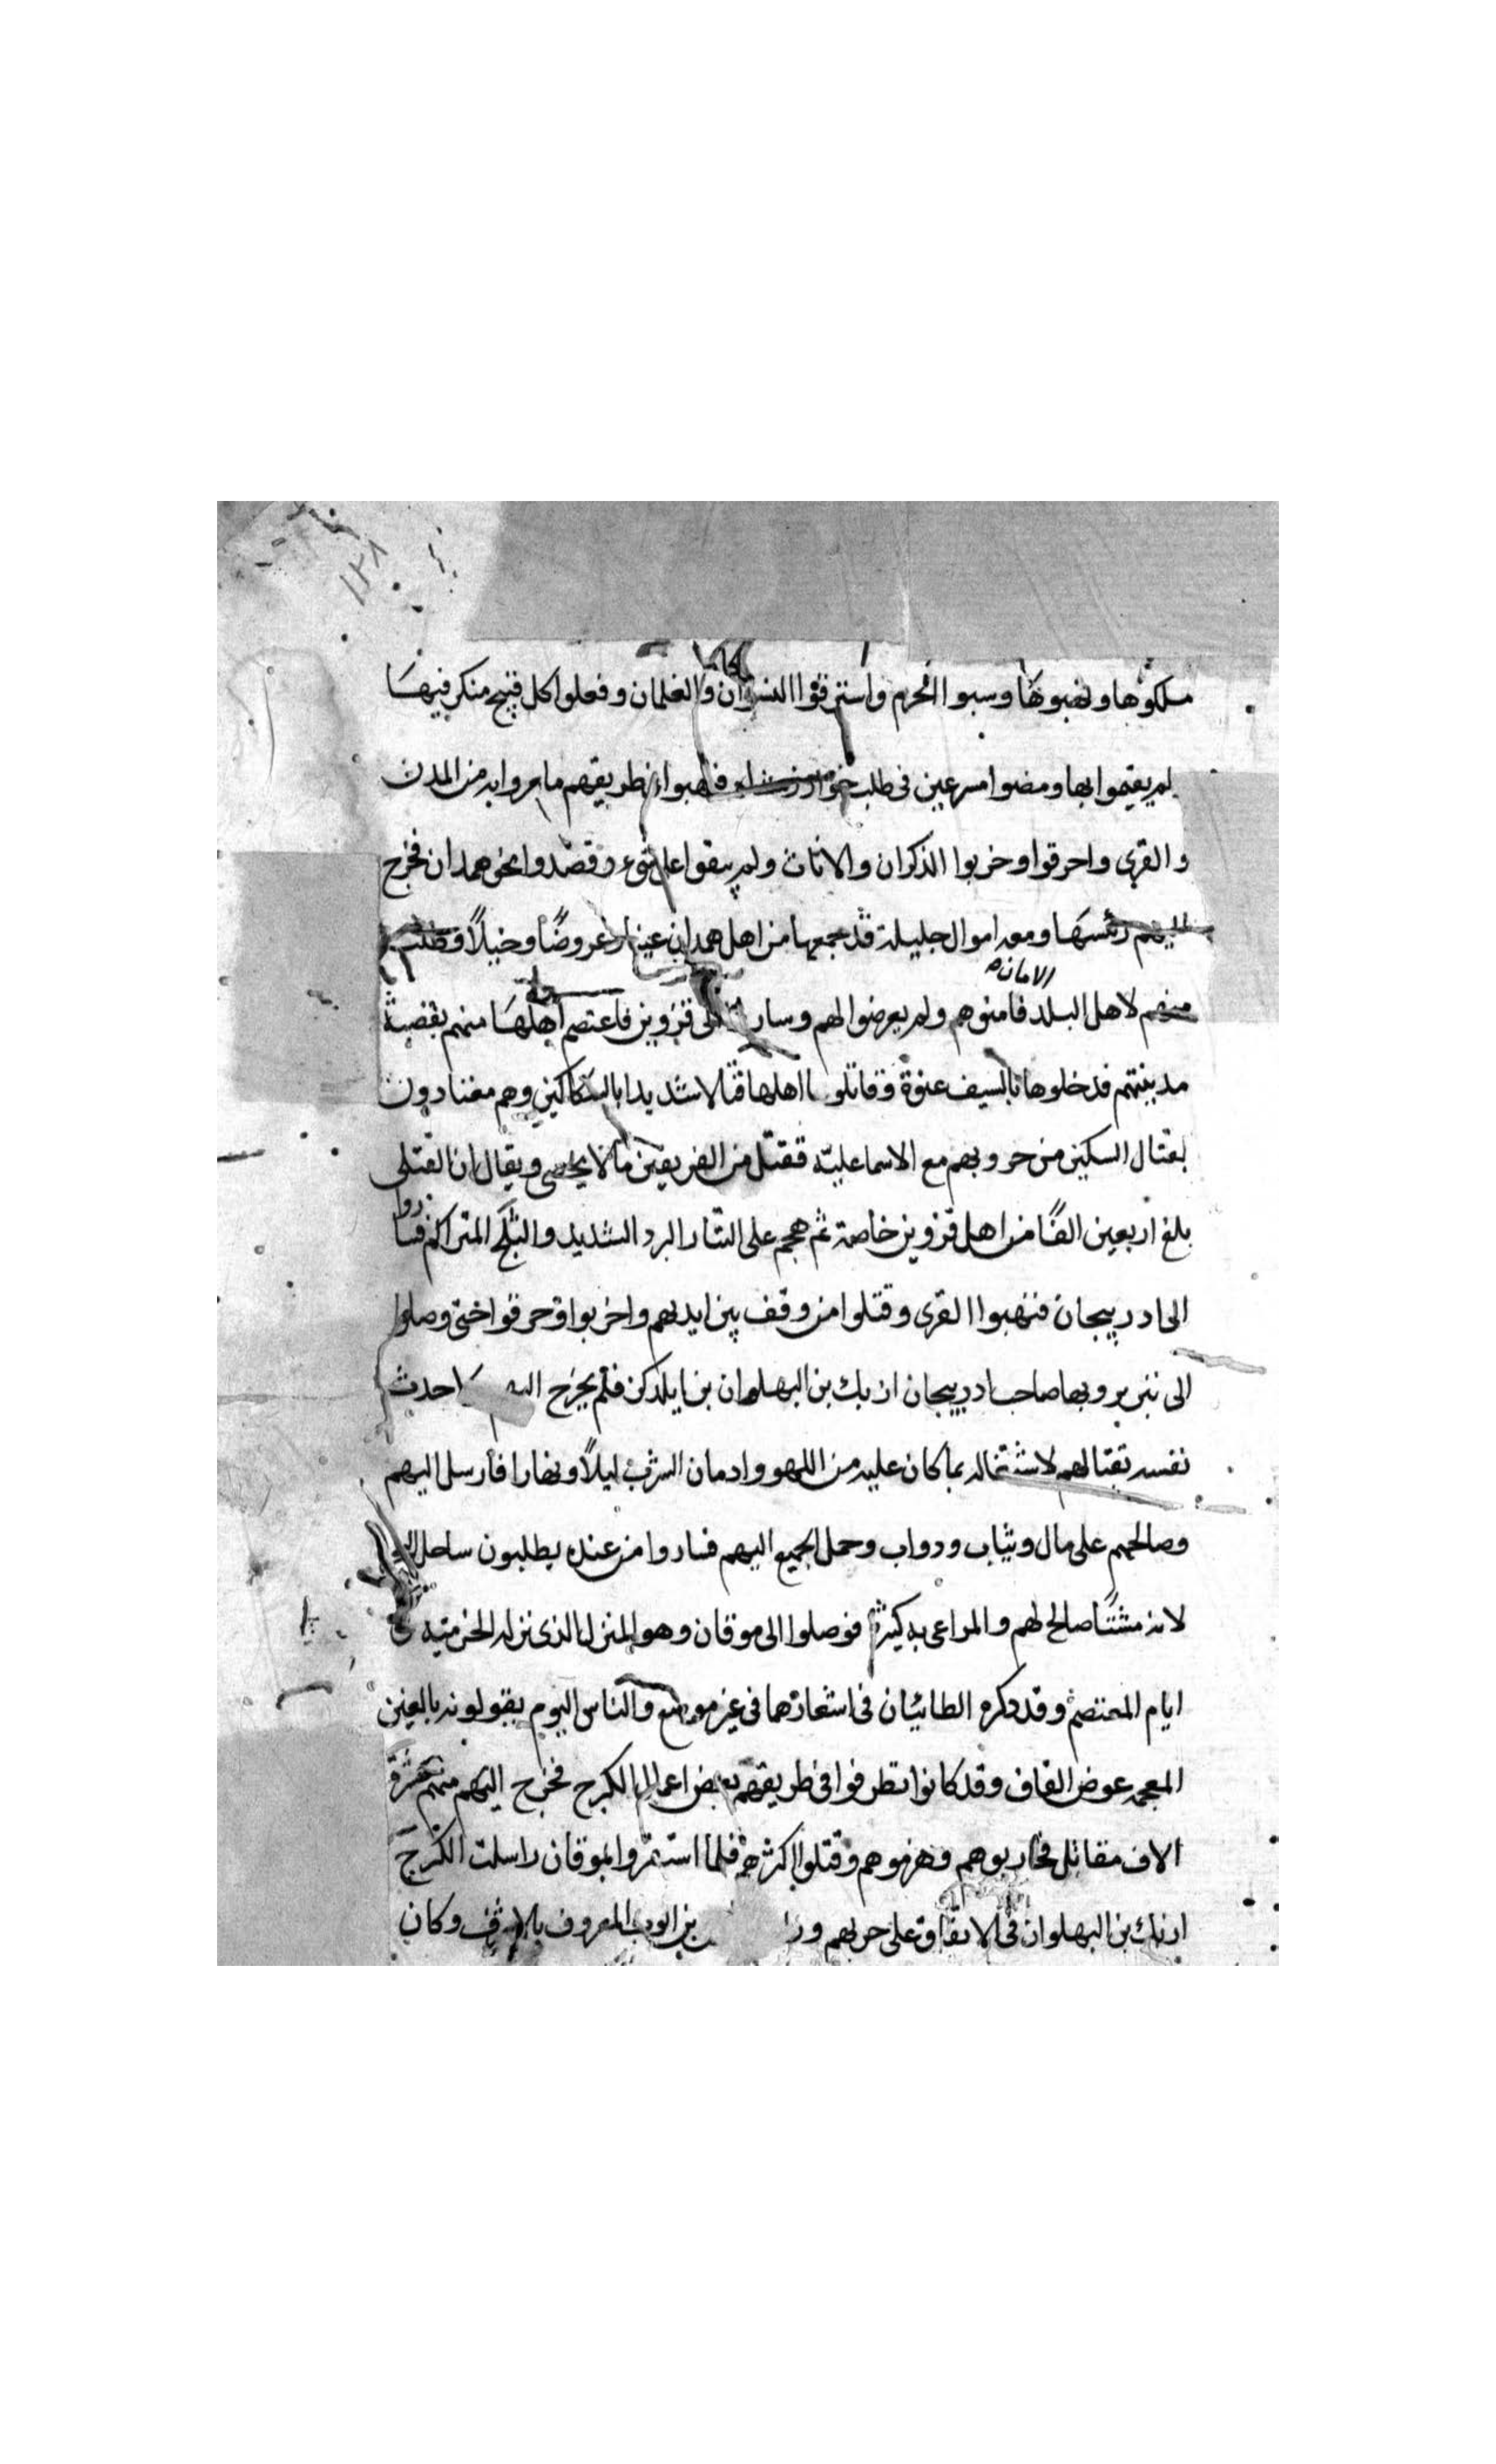 ١٢٨
ملكوها ونهبوها وسبوا الحرم واسترقوا النسوان والغلمان وفعلوا كل قبيح منكر فيها
لم يقيموا بها ومضوا مسرعين فى طلب خوارزمشاه فنهبوا فى طريقهم ما مروا به من المدن
والقرى واحرقوا وخربوا الذكران والاناث ولم يبقوا على شىء وقصدوا نحو همدان فخرج
اليهم رئيسها ومعه اموال جليلة قد جمعها من اهل همدان عينا وعروضًا وخيلاً وطلب
الامان
منهم لاهل البلد فامنوهم ولم يعرضوا لهم وسار الى قزوين فاعتصم اهلها منهم بقصبة
مدينتهم فدخلوها بالسيف عنوة وقاتلوا اهلها قتالا شديدا بالسكاكين وهم معتادون
بقتال السكين من حروبهم مع الاسماعلية فقتل من الفريقين مالا يحصى ويقال ان القتلى
بلغ اربعين الفًا من اهل قزوين خاصة ثم هجم على التتار البرد الشديد والثلج المتراكم فساروا
الى ادربيجان فنهبوا القرى وقتلوا من وقف بين ايديهم واخربوا وحرقوا حتى وصلوا
الى تبريز وبها صاحب ادربيجان ازبك بن البهلوان بن ايلدكز فلم يخرج احدث
نفسه بقتالهم لاشتغاله بما كان عليه من اللهو وادمان الشرب ليلاً ونهارا فأرسل اليهم
وصالحهم على مال وثياب ودواب وحمل الجميع اليهم فساروا من عنده يطلبون ساحل
لانه مشتًا صالح لهم والمراعى به كثيرة فوصلوا الى موقان وهو المنزل الذى نزله الخرمية فى
ايام المعتصم وقد ذكره الطائيان فى اشعارهما فى غير موضع والناس اليوم يقولونه بالغين
المعجمه عوض القاف وقد كانوا تطرفوا فى طريقهم بعض اعمال الكرج فخرج اليهم منهم عشرة
الاف مقاتل فحاربوهم وهزموهم وقتلوا اكثرهم فلما استقروا بموقان راسلت الكرج
ازبك بن البهلوان فى الاتفاق على حربهم بن ايوب المعروف بالاشرف وكان